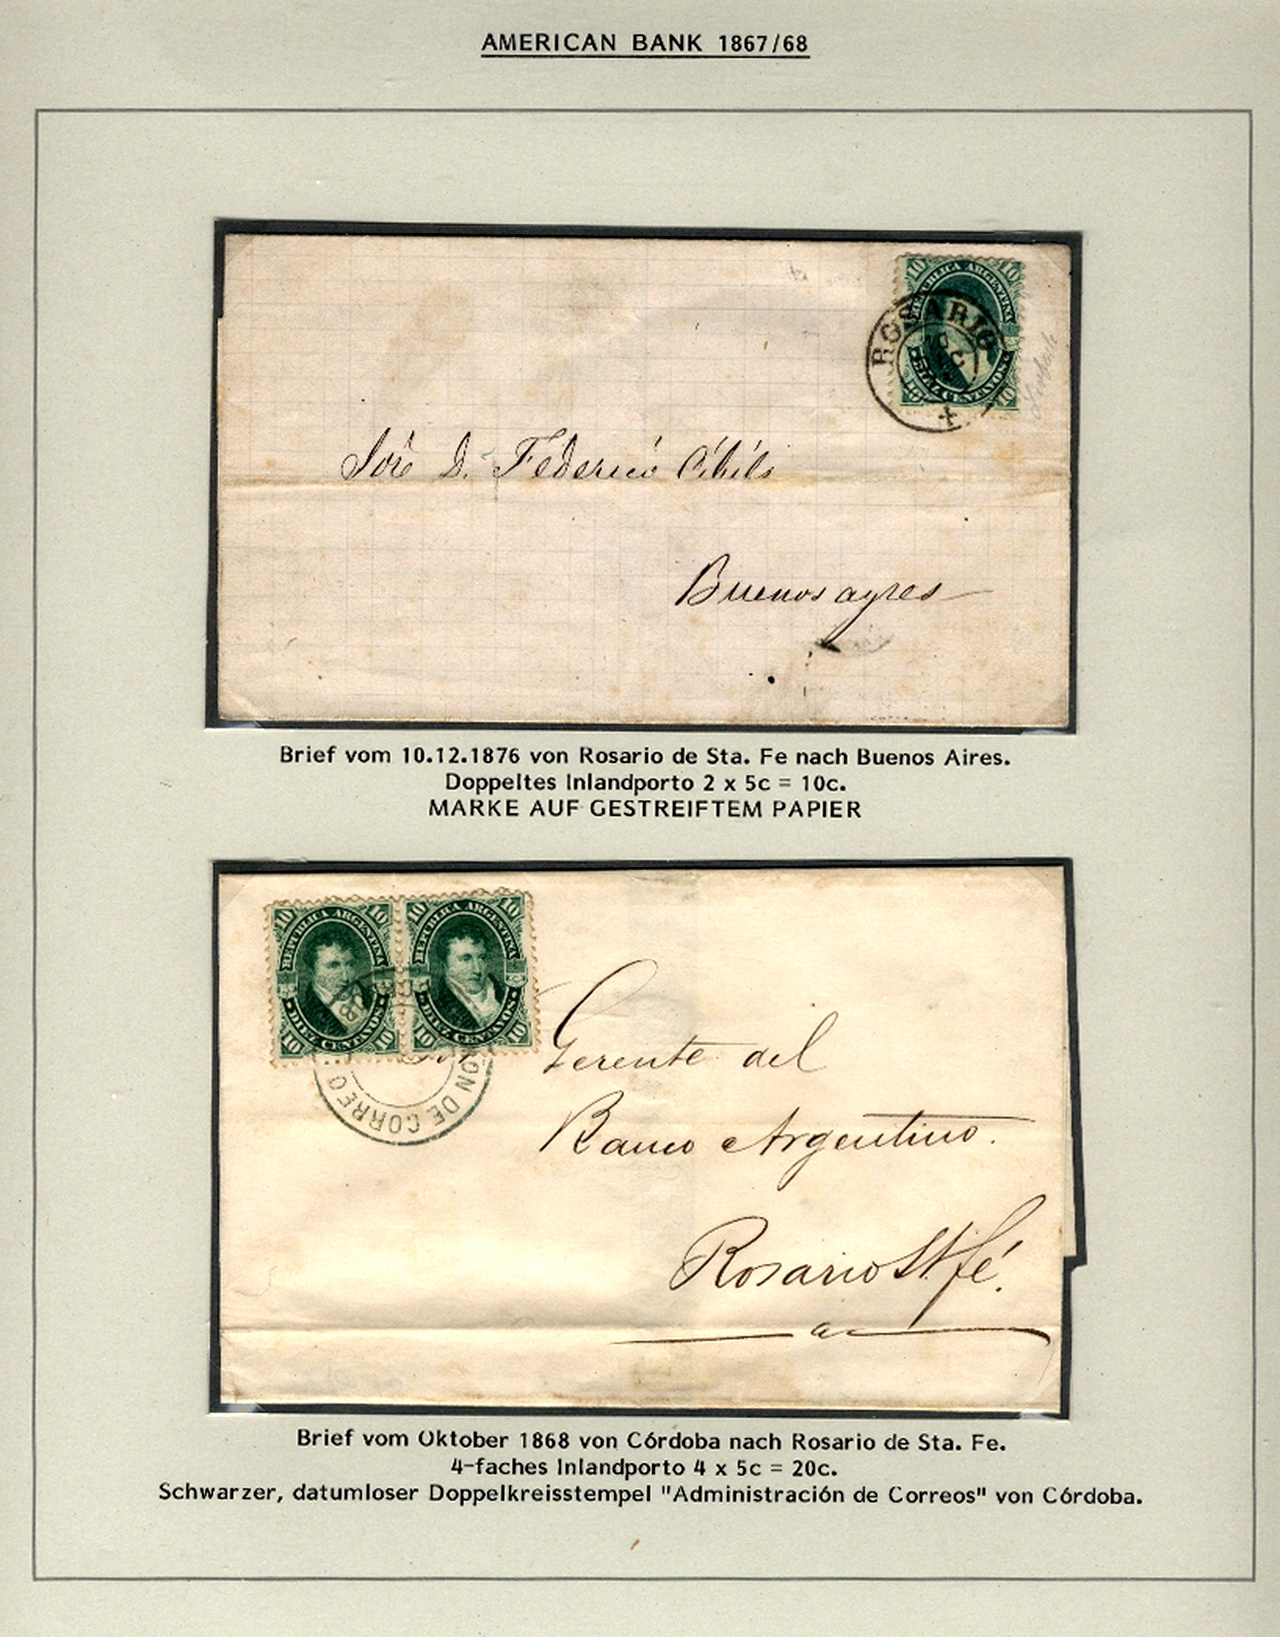 AMERICAN BANK 1867/68
10 10
REPUBLICA ARGENTINA
ROSARIO
DIEZ CENTAVOS
10 10
D. Federico
Buenos ayres
Brief vom 10.12.1876 von Rosario de Sta. Fe nach Buenos Aires.
Doppeltes Inlandporto 2 x 5c = 10c.
MARKE AUF GESTREIFTEM PAPIER
10 10 10 10
REPUBLICA ARGENTINA REPUBLICA ARGENTINA
DIEZ CENTAVOS DIEZ CENTAVOS
10 10 10 10
ION DE CORREO
Gerente del
Banco Argentino.
Rosario St. fé.
Brief vom Oktober 1868 von Córdoba nach Rosario de Sta. Fe.
4-faches Inlandporto 4 x 5c = 20c.
Schwarzer, datumloser Doppelkreisstempel "Administración de Correos" von Córdoba.